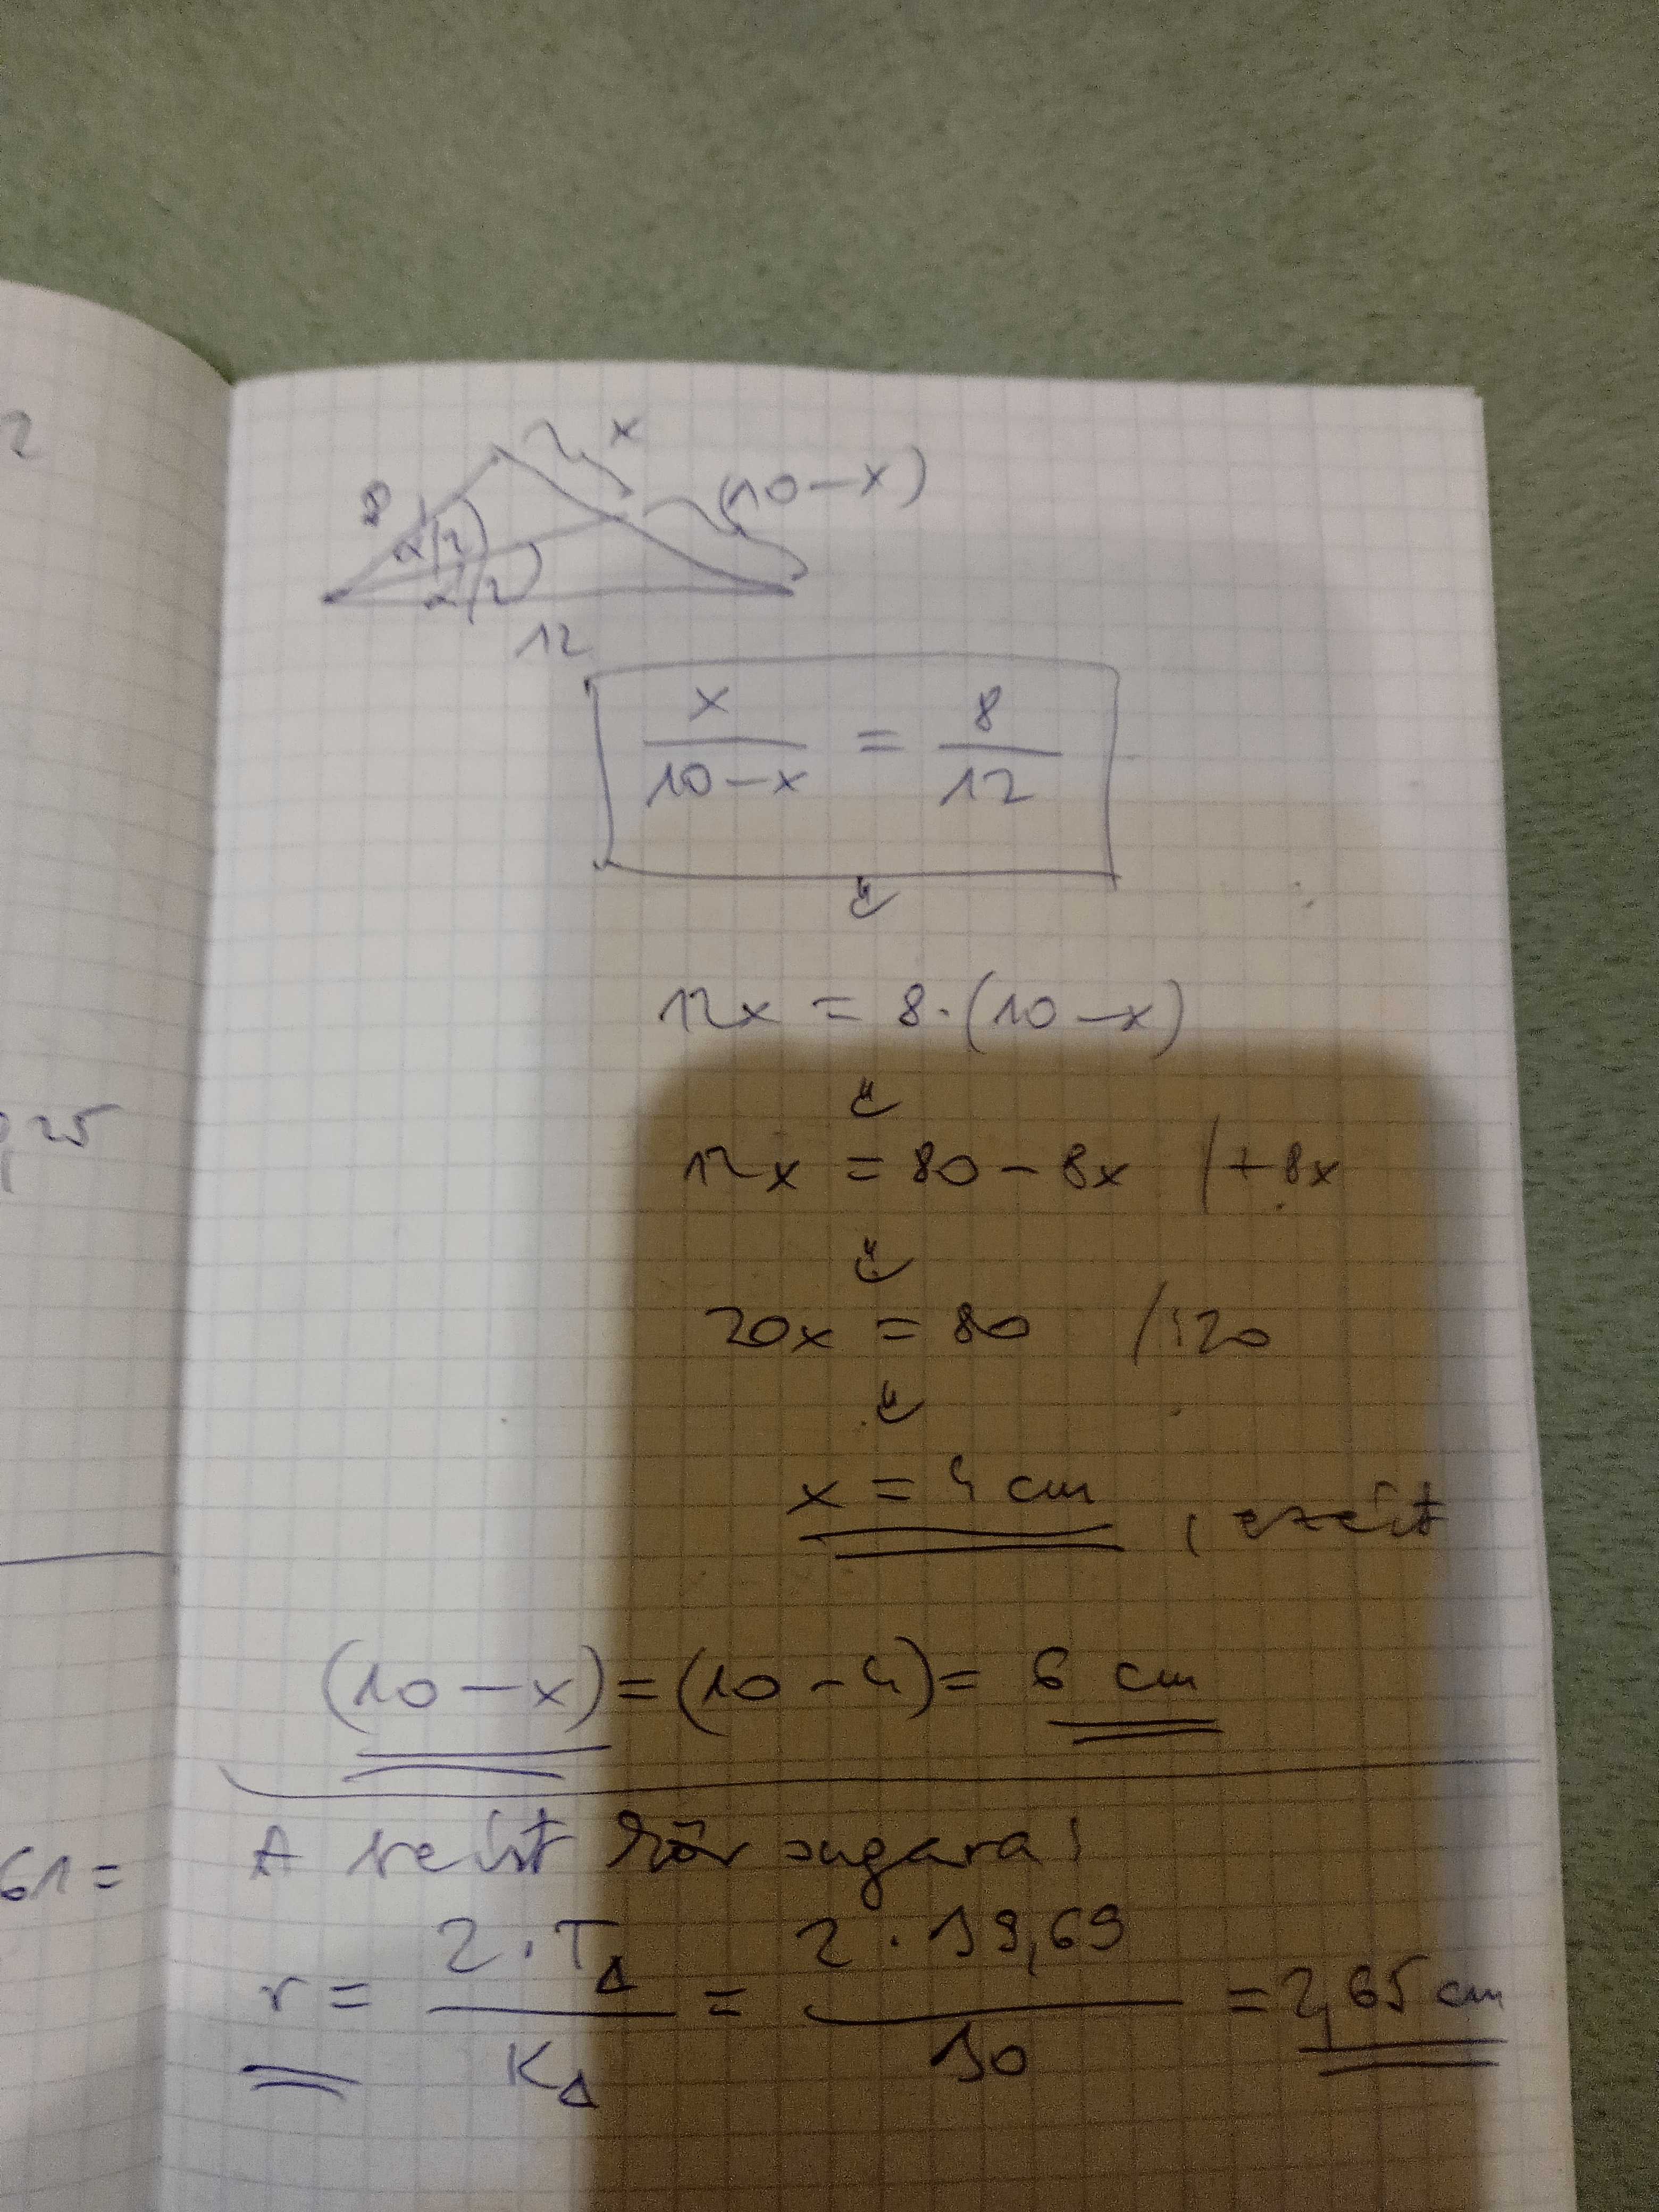 2
x
8
(10-x)
α/2
α/2
12
x/(10-x) = 8/12
12x = 8·(10-x)
,25
12x = 80-8x /+8x
20x = 80 /:20
x = 4 cm, ezért
(10-x) = (10-4) = 6 cm
61=
A beírt kör sugara:
r = 2·T△/K△ = 2·39,69/30 = 2,65 cm